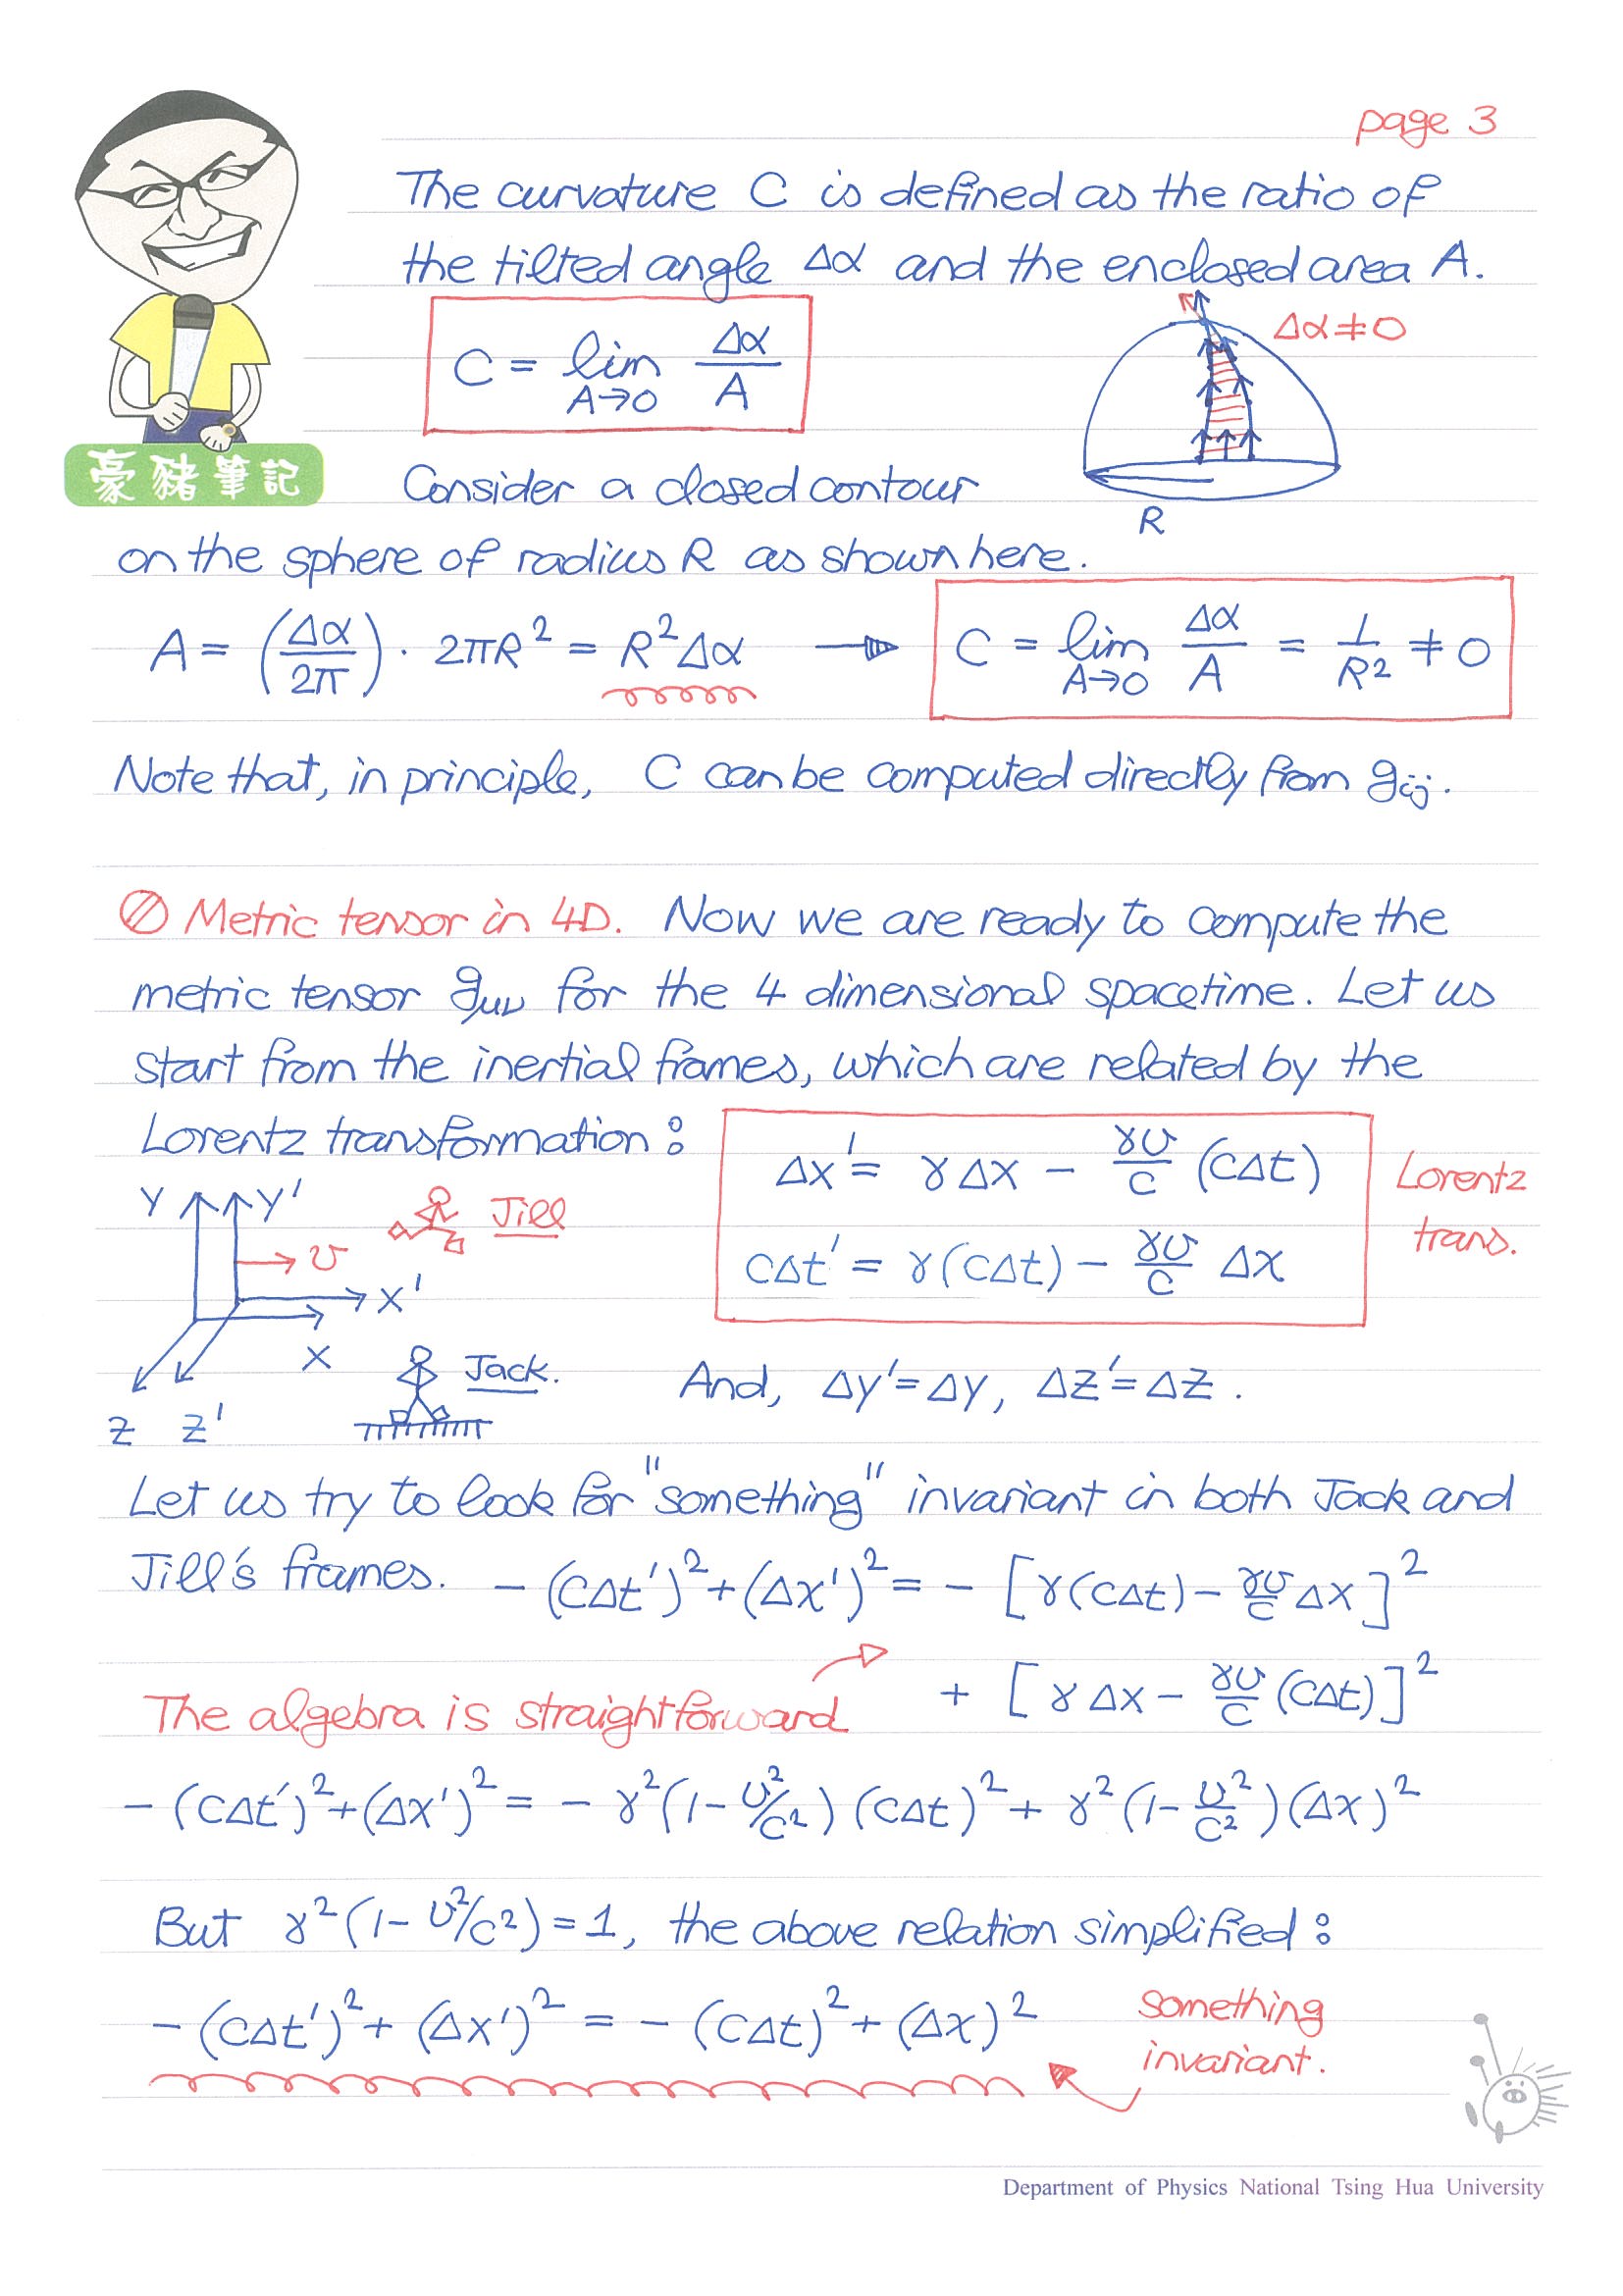 page 3
The curvature C is defined as the ratio of
the tilted angle Δα and the enclosed area A.
C = lim A→0 Δα/A
Δα≠0
豪豬筆記
Consider a closed contour
R
on the sphere of radius R as shown here.
A = (Δα/2π) · 2πR² = R²Δα → C = lim A→0 Δα/A = 1/R² ≠ 0
Note that, in principle, C can be computed directly from gij.
Metric tensor in 4D. Now we are ready to compute the
metric tensor gμν for the 4 dimensional spacetime. Let us
start from the inertial frames, which are related by the
Lorentz transformation:
Δx' = γΔx − γv/c (cΔt)
cΔt' = γ(cΔt) − γv/c Δx
Lorentz
trans.
Y Y' Jill
v
X'
X
Z Z'
Jack.
And, Δy'=Δy, Δz'=Δz.
Let us try to look for "something" invariant in both Jack and
Jill's frames. −(cΔt')²+(Δx')² = −[γ(cΔt)−γv/c Δx]²
+ [γΔx − γv/c (cΔt)]²
The algebra is straightforward
−(cΔt')²+(Δx')² = −γ²(1−v²/c²)(cΔt)² + γ²(1−v²/c²)(Δx)²
But γ²(1−v²/c²)=1, the above relation simplified:
−(cΔt')² + (Δx')² = −(cΔt)² + (Δx)²
something
invariant.
Department of Physics National Tsing Hua University